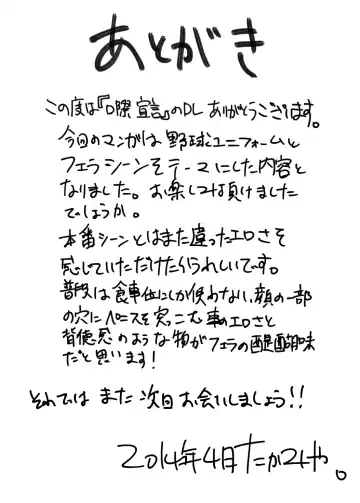 あとがき
この度は『口際宣言』のDLありがとうございます。
今回のマンガは野球ユニフォームと
フェラシーンをテーマにした内容と
なりました。お楽しみ頂けました
でしょうか。
本番シーンとはまた違ったエロさを
感じていただけたらうれしいです。
普段は食事位にしか使わない顔の一部
の穴にペニスを突っこむ事のエロさと
背徳感のような物がフェラの醍醐味
だと思います!
それでは また 次回 お会いしましょう!!
2014年4月